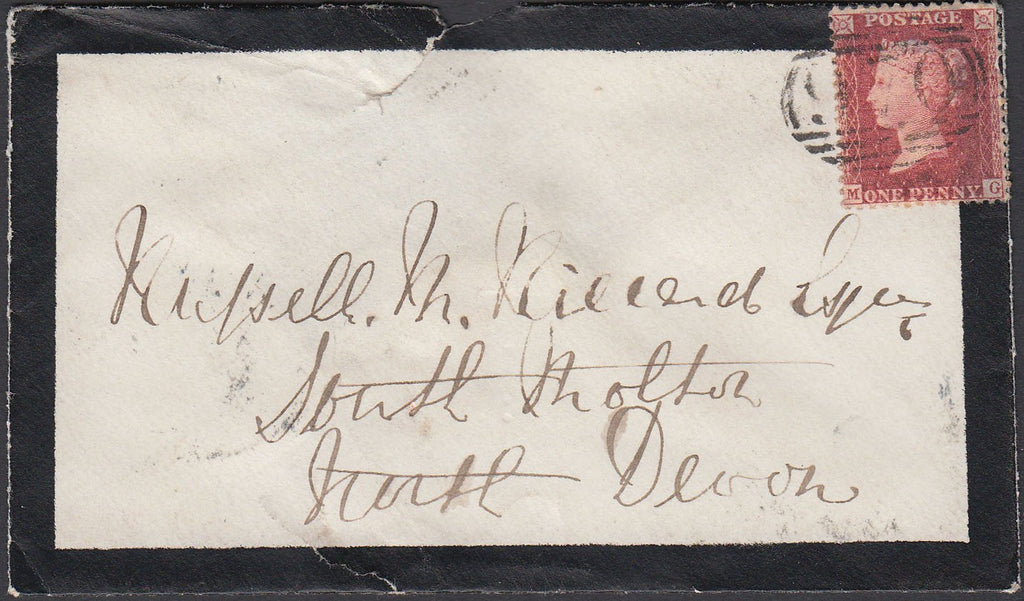 POSTAGE
M ONE PENNY G
Russell. M. Riccard Esqre
South Molton
North Devon